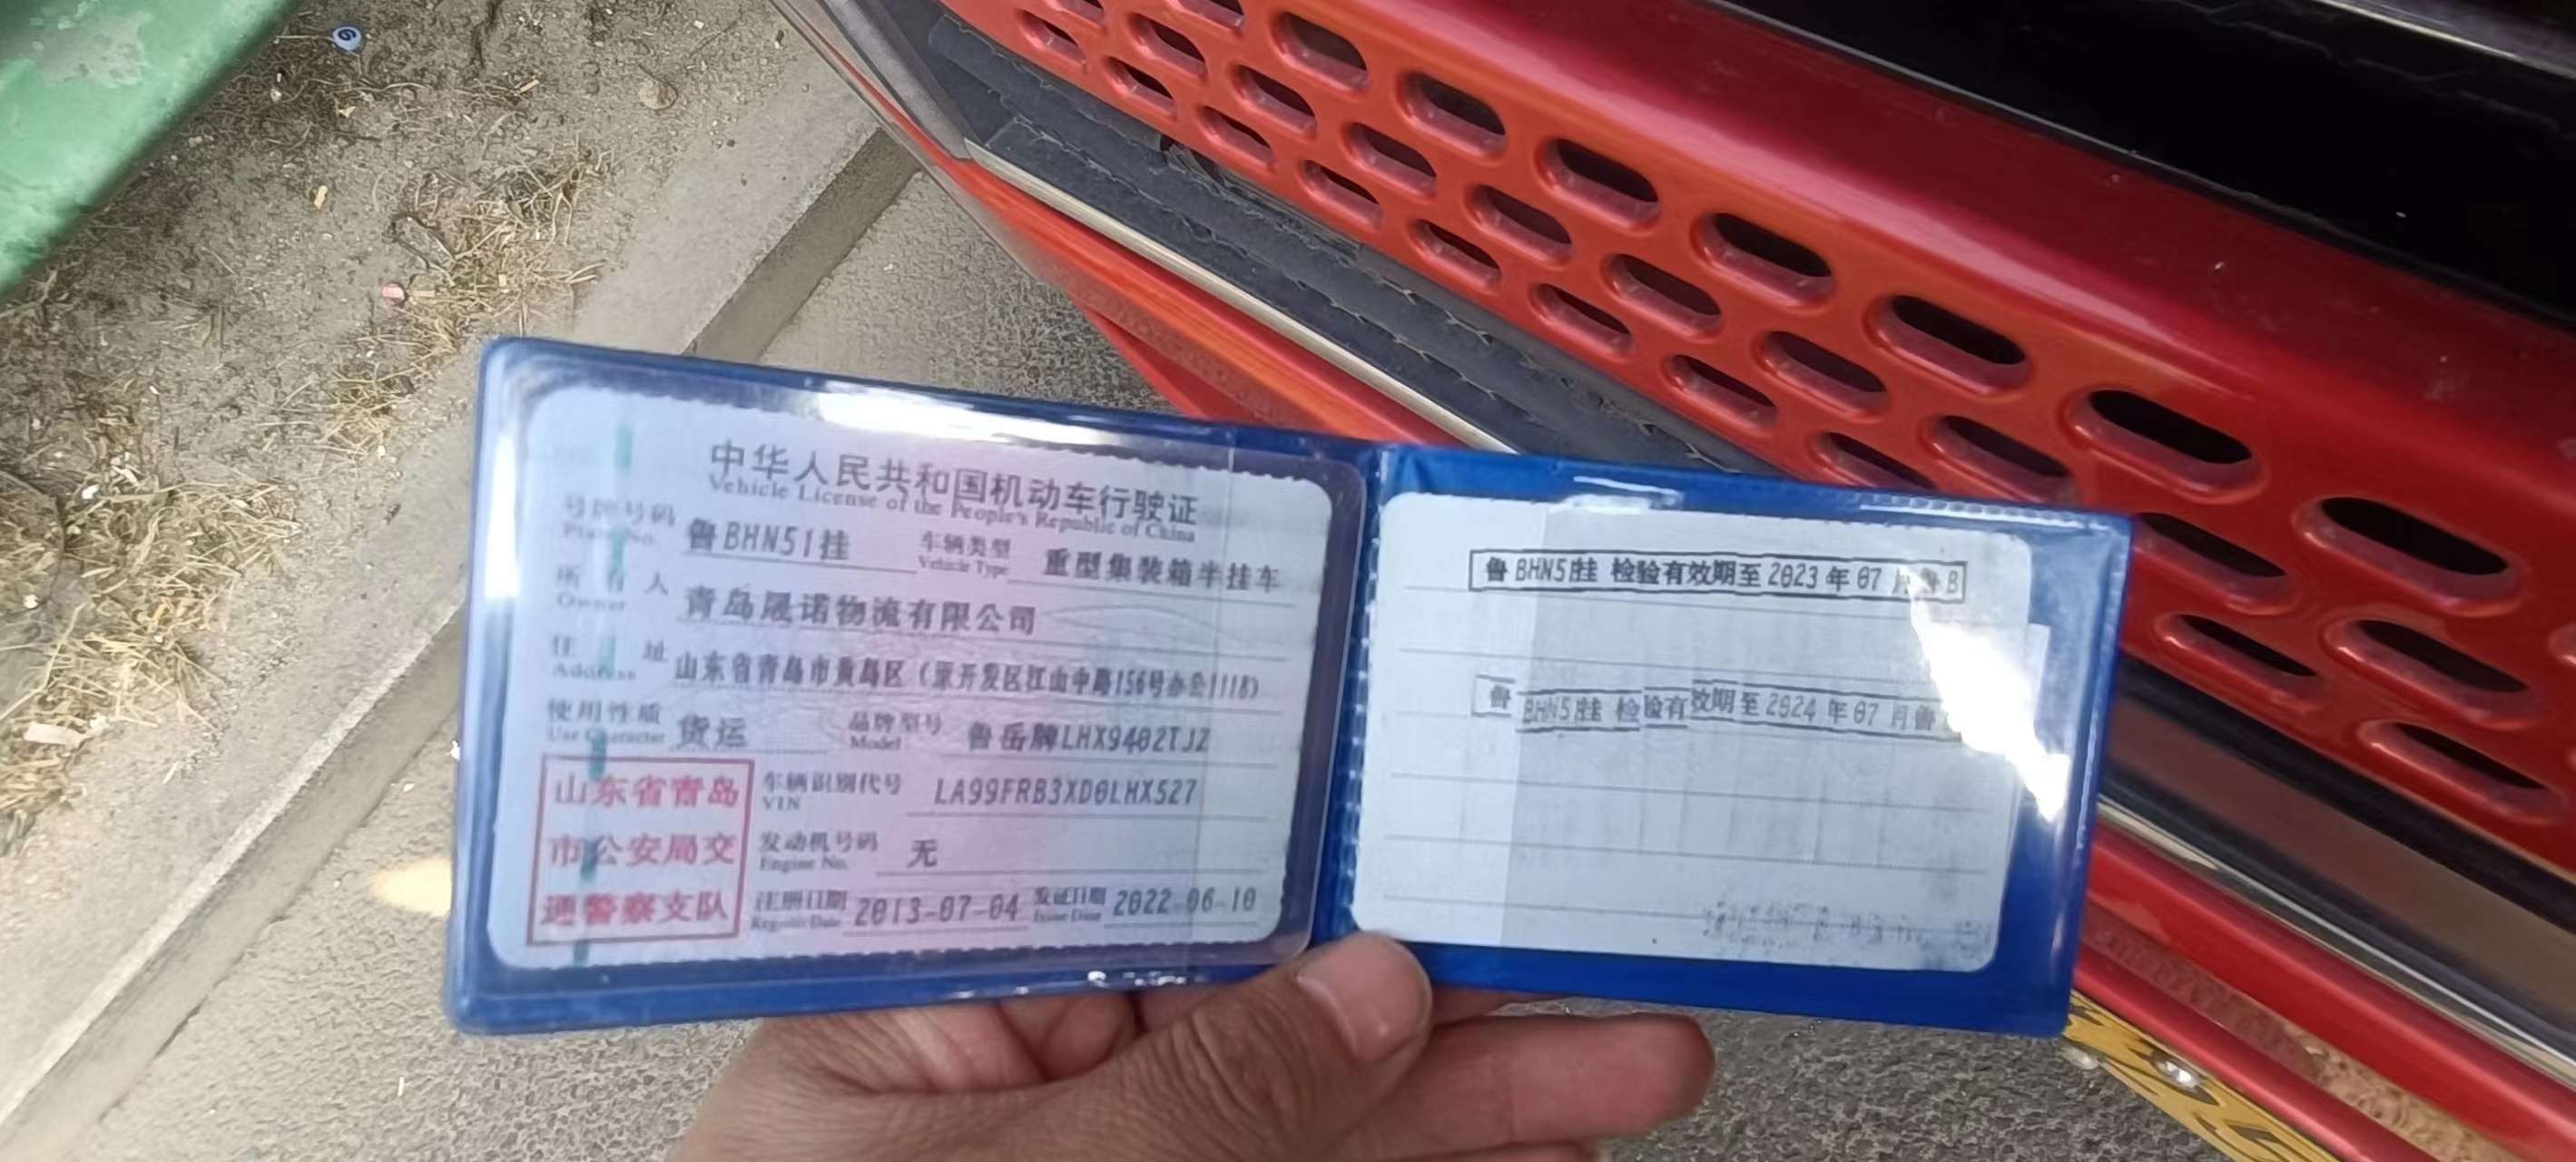 中华人民共和国机动车行驶证
Vehicle License of the People's Republic of China
号牌号码 鲁BHN51挂 车辆类型 重型集装箱半挂车
Plate No. Vehicle Type
所有人 青岛晟诺物流有限公司
Owner
住址 山东省青岛市黄岛区(原开发区江山中路156号办公1118)
Address
使用性质 货运 品牌型号 鲁岳牌LHX9402TJZ
Use Character Model
山东省青岛
市公安局交
通警察支队
车辆识别代号 LA99FRB3XD0LHX527
VIN
发动机号码 无
Engine No.
注册日期 2013-07-04 发证日期 2022-06-10
Register Date Issue Date
鲁BHN51挂 检验有效期至2023年07月鲁B
鲁BHN51挂 检验有效期至2024年07月鲁